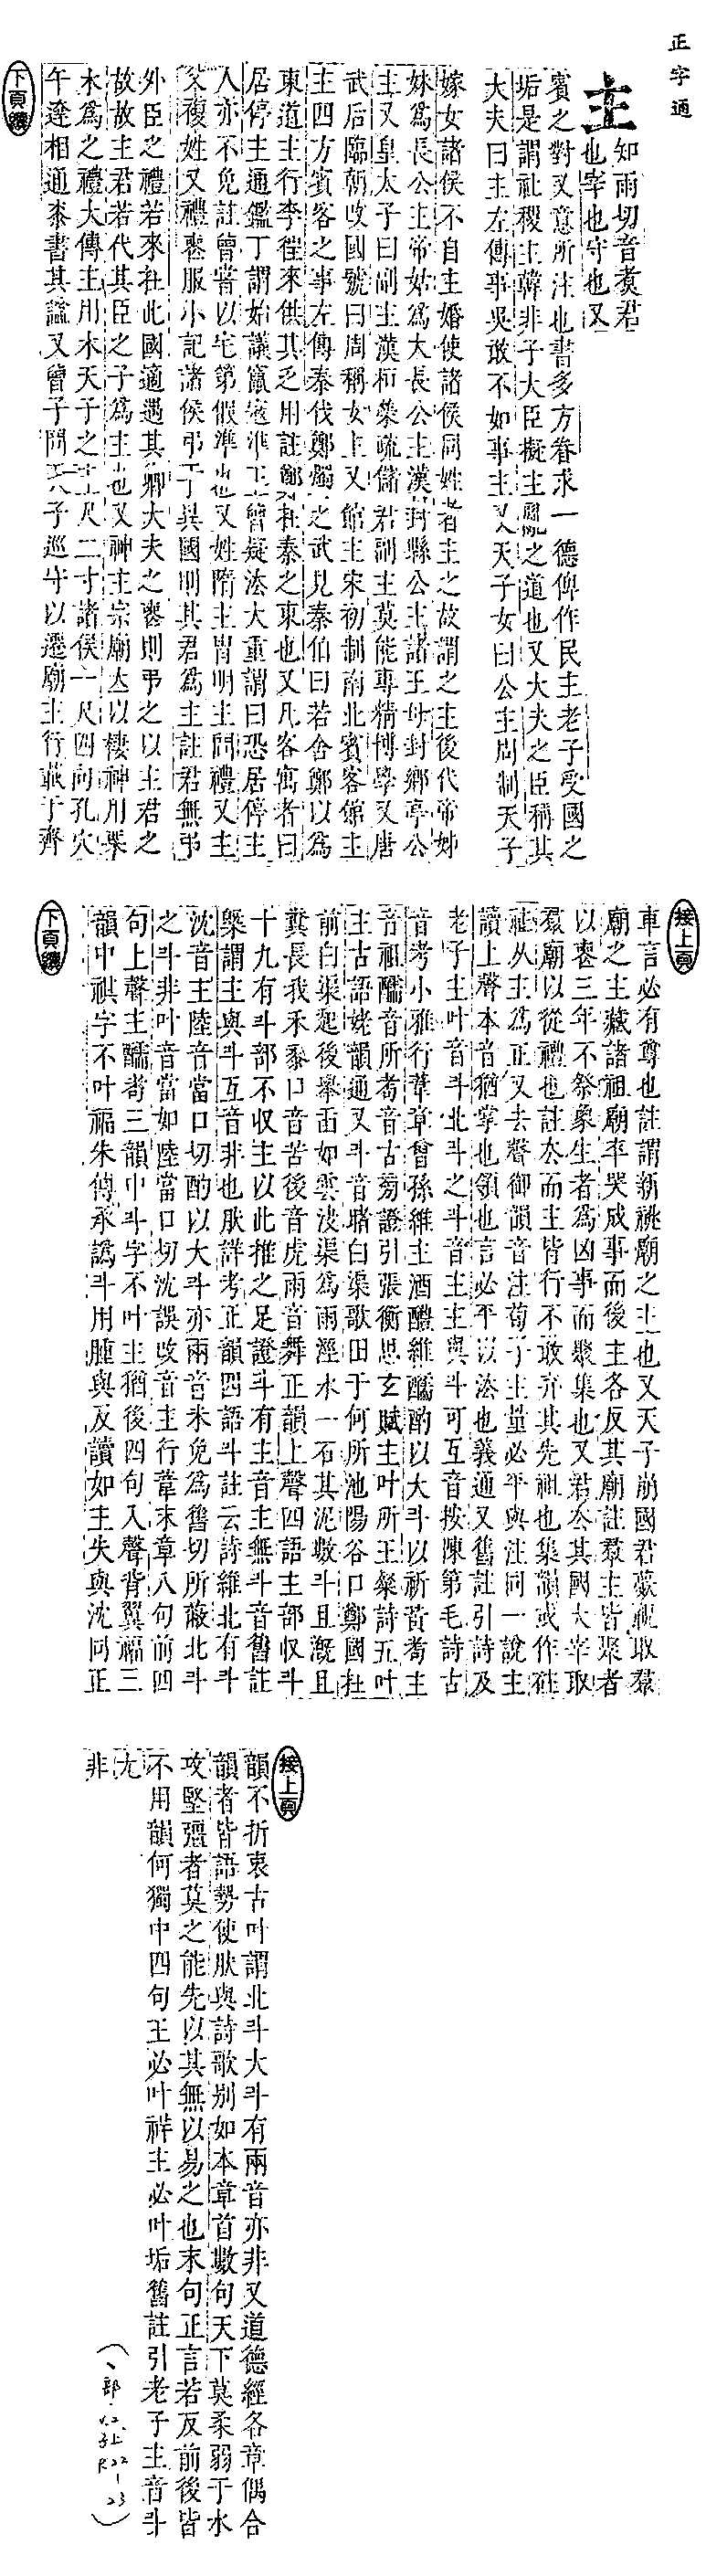 正字通
主
知雨切音麈君
也宰也守也又
賓之對又意所注也書多方眷求一德俾作民主老子受國之
垢是謂社稷主韓非子大臣擬主亂之道也又大夫之臣稱其
大夫曰主左傳事吳敢不如事主又天子女曰公主周制天子
嫁女諸侯不自主婚使諸侯同姓者主之故謂之主後代帝姊
妹爲長公主帝姑爲大長公主漢封縣公主諸王母封鄉亭公
主又皇太子曰副主漢桓榮疏儲君副主莫能專精博學又唐
武后臨朝改國號曰周稱女主又館主宋初制南北賓客館主
主四方賓客之事左傳秦伐鄭燭之武見秦伯曰若舍鄭以爲
東道主行李往來供其乏用註鄭在秦之東也又凡客寓者曰
居停主通鑑丁謂始議竄寇準王曾疑法大重謂曰恐居停主
人亦不免註曾嘗以宅第假準也又姓隋主冑明主問禮又主
父複姓又禮喪服小記諸侯弔于異國則其君爲主註君無弔
外臣之禮若來在此國適遇其卿大夫之喪則弔之以主君之
故故主君若代其臣之子爲主也又神主宗廟立以棲神用栗
木爲之禮大傳主用木天子之主尺二寸諸侯一尺四向孔穴
午達相通漆書其諡又曾子問天子巡守以遷廟主行載于齊
下頁續
接上頁
車言必有尊也註謂新祧廟之主也又天子崩國君薨祝取羣
廟之主藏諸祖廟卒哭成事而後主各反其廟註羣主皆聚者
以喪三年不祭象生者爲凶事而聚集也又君去其國大宰取
羣廟以從禮也註去而主皆行不敢弃其先祖也集韻或作砫
祉从主爲正又去聲御韻音注荀子主量必平與注同一說主
讀上聲本音猶掌也領也言必平以法也義通又舊註引詩及
老子主叶音斗北斗之斗音主主與斗可互音按陳第毛詩古
音考小雅行葦章曾孫維主酒醴維醹酌以大斗以祈黃耇主
音祖醹音所耇音古旁證引張衡思玄賦主叶所王粲詩五叶
主古語姥韻通又斗音賭白渠歌田于何所池陽谷口鄭國在
前白渠起後舉臿如雲決渠爲雨涇水一石其泥數斗且溉且
糞長我禾黍口音苦後音虎雨音舞正韻上聲四語主部收斗
十九有斗部不收主以此推之足證斗有主音主無斗音舊註
槩謂主與斗互音非也朕詳考正韻四語斗註云詩維北有斗
沈音主陸音當口切酌以大斗亦兩音未免爲舊切所蔽北斗
之斗非叶音當如陸當口切沈誤改音主行葦末章八句前四
句上聲主醹耇三韻中斗字不叶主猶後四句入聲背翼福三
韻中祺字不叶福朱傳承譌斗用腫與反讀如主失與沈同正
下頁續
接上頁
韻不折衷古叶謂北斗大斗有兩音亦非又道德經各章偶合
韻者皆語勢使肰與詩歌別如本章首數句天下莫柔弱于水
攻堅彊者莫之能先以其無以易之也末句正言若反前後皆
不用韻何獨中四句王必叶祥主必叶垢舊註引老子主音斗
尤
非
(丶部.V.2.子上P.22-23)